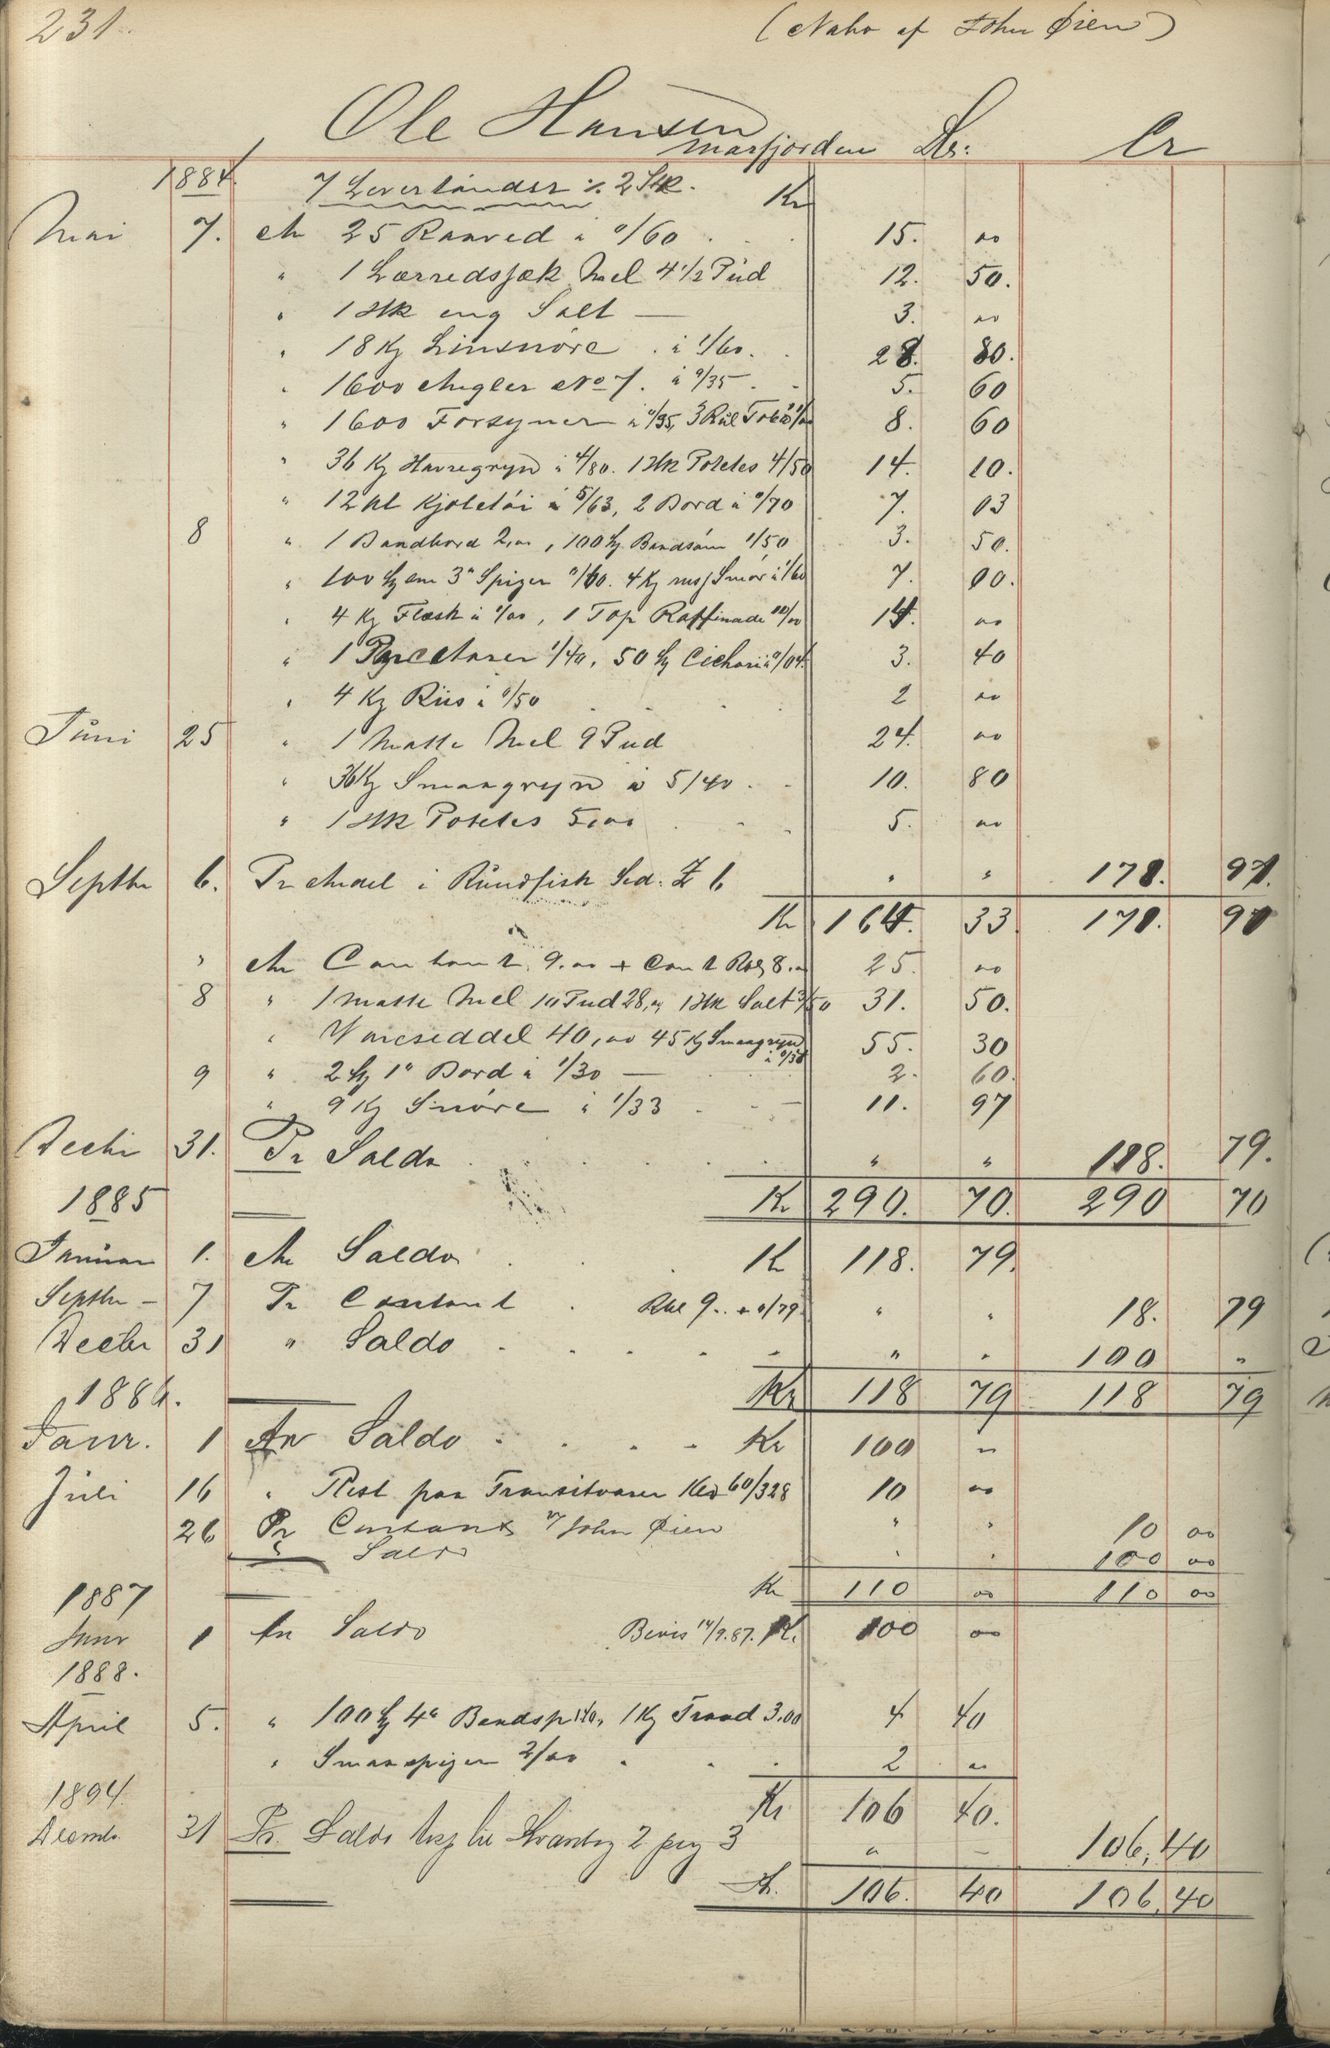 231.
(Nabo af John Øien)
Ole Hansen
Masfjorden Dr: Cr
1884. 7 Levertønder % 2 Stk. Kr
Mai 7. An 25 Raaved à "/60 15. 00
" 1 Lærredssæk Mel 4 1/2 Pud 12. 50.
" 1 Htk eng Salt — 3. 00
" 18 Kg Linsnöre à 1/60. 28. 80.
" 1600 Angler No 7. à "/35 5. 60
" 1600 Forsyner à "/35, 3 Rul Tobak 8. 60
" 36 Kg Havregryn à 4/80. 1 Htk Potetes 4/50 14. 10.
" 12 al Kjoletöi à 5/63, 2 Bord à "/70 7. 03
8 " 1 Baadbord 2,00, 100 Stk Baadsöm 1/50 3. 50.
" 100 Stk em 3" Spiger "/60. 4 Kg rusf Smör à 1/60 7. 00.
" 4 Kg Flæsk à 1/00, 1 Top Raffinade 10/00 14. 00
" 1/40, 50 Stk Cichorie à "/04. 3. 40
" 4 Kg Riis à "/50 2 00
Juni 25 " 1 Matte Mel 9 Pud 24. 00
" 36 Kg Smaagryn à 5/40 10. 80
" 1 Htk Potetes 5,00 5. 00
Septbr 6. Pr Andel i Rundfisk Sed. Z 6 " " 178. 91.
Kr 164. 33 178. 91
" An Contant 9.00 + Cont Rbl 8.00 25. 00
8 " 1 Matte Mel 10 Pud 28,00, 1 Htk Salt 3/50 31. 50.
" Vareseddel 40,00 45 Kg Smaagryn à "/34 55. 30
9 " 2 Stk 1" Bord à 1/30 — 2. 60.
" 9 Kg Snöre à 1/33 11. 97
Decbr 31. Pr Saldo " " 118. 79.
1885 Kr 290. 70. 290 70
Januar 1. An Saldo Kr 118. 79.
Septbr — 7 Pr Contant Rbl 9.. + "/79 " " 18. 79
Decbr 31 " Saldo " " 100 "
1886. Kr 118 79 118 79
Janr. 1 An Saldo Kr 100 "
Juli 16 " Rest paa Transitvarer Kld 60/328 10 00
26 Pr Contant v/ John Øien " " 10 00
" Saldo " " 100 00
1887 Kr 110 00 110 00
Janr 1 An Saldo Bevis 14/9.87. Kr. 100 00
1888.
April 5. " 100 Stk 4" Baadsp 1.40, 1 Kg Traad 3.00 4 40
" Smaaspiger 2/00 2 00
1894 Kr 106 40.
Decmb. 31 Pr. Saldo Kvantbog 2 pag 3 " — 106,40
Kr. 106. 40 106,40